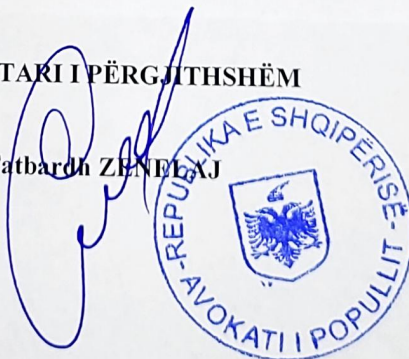 TARI I PËRGJITHSHËM
atbardh ZENELAJ
REPUBLIKA E SHQIPËRISË
AVOKATI I POPULLIT